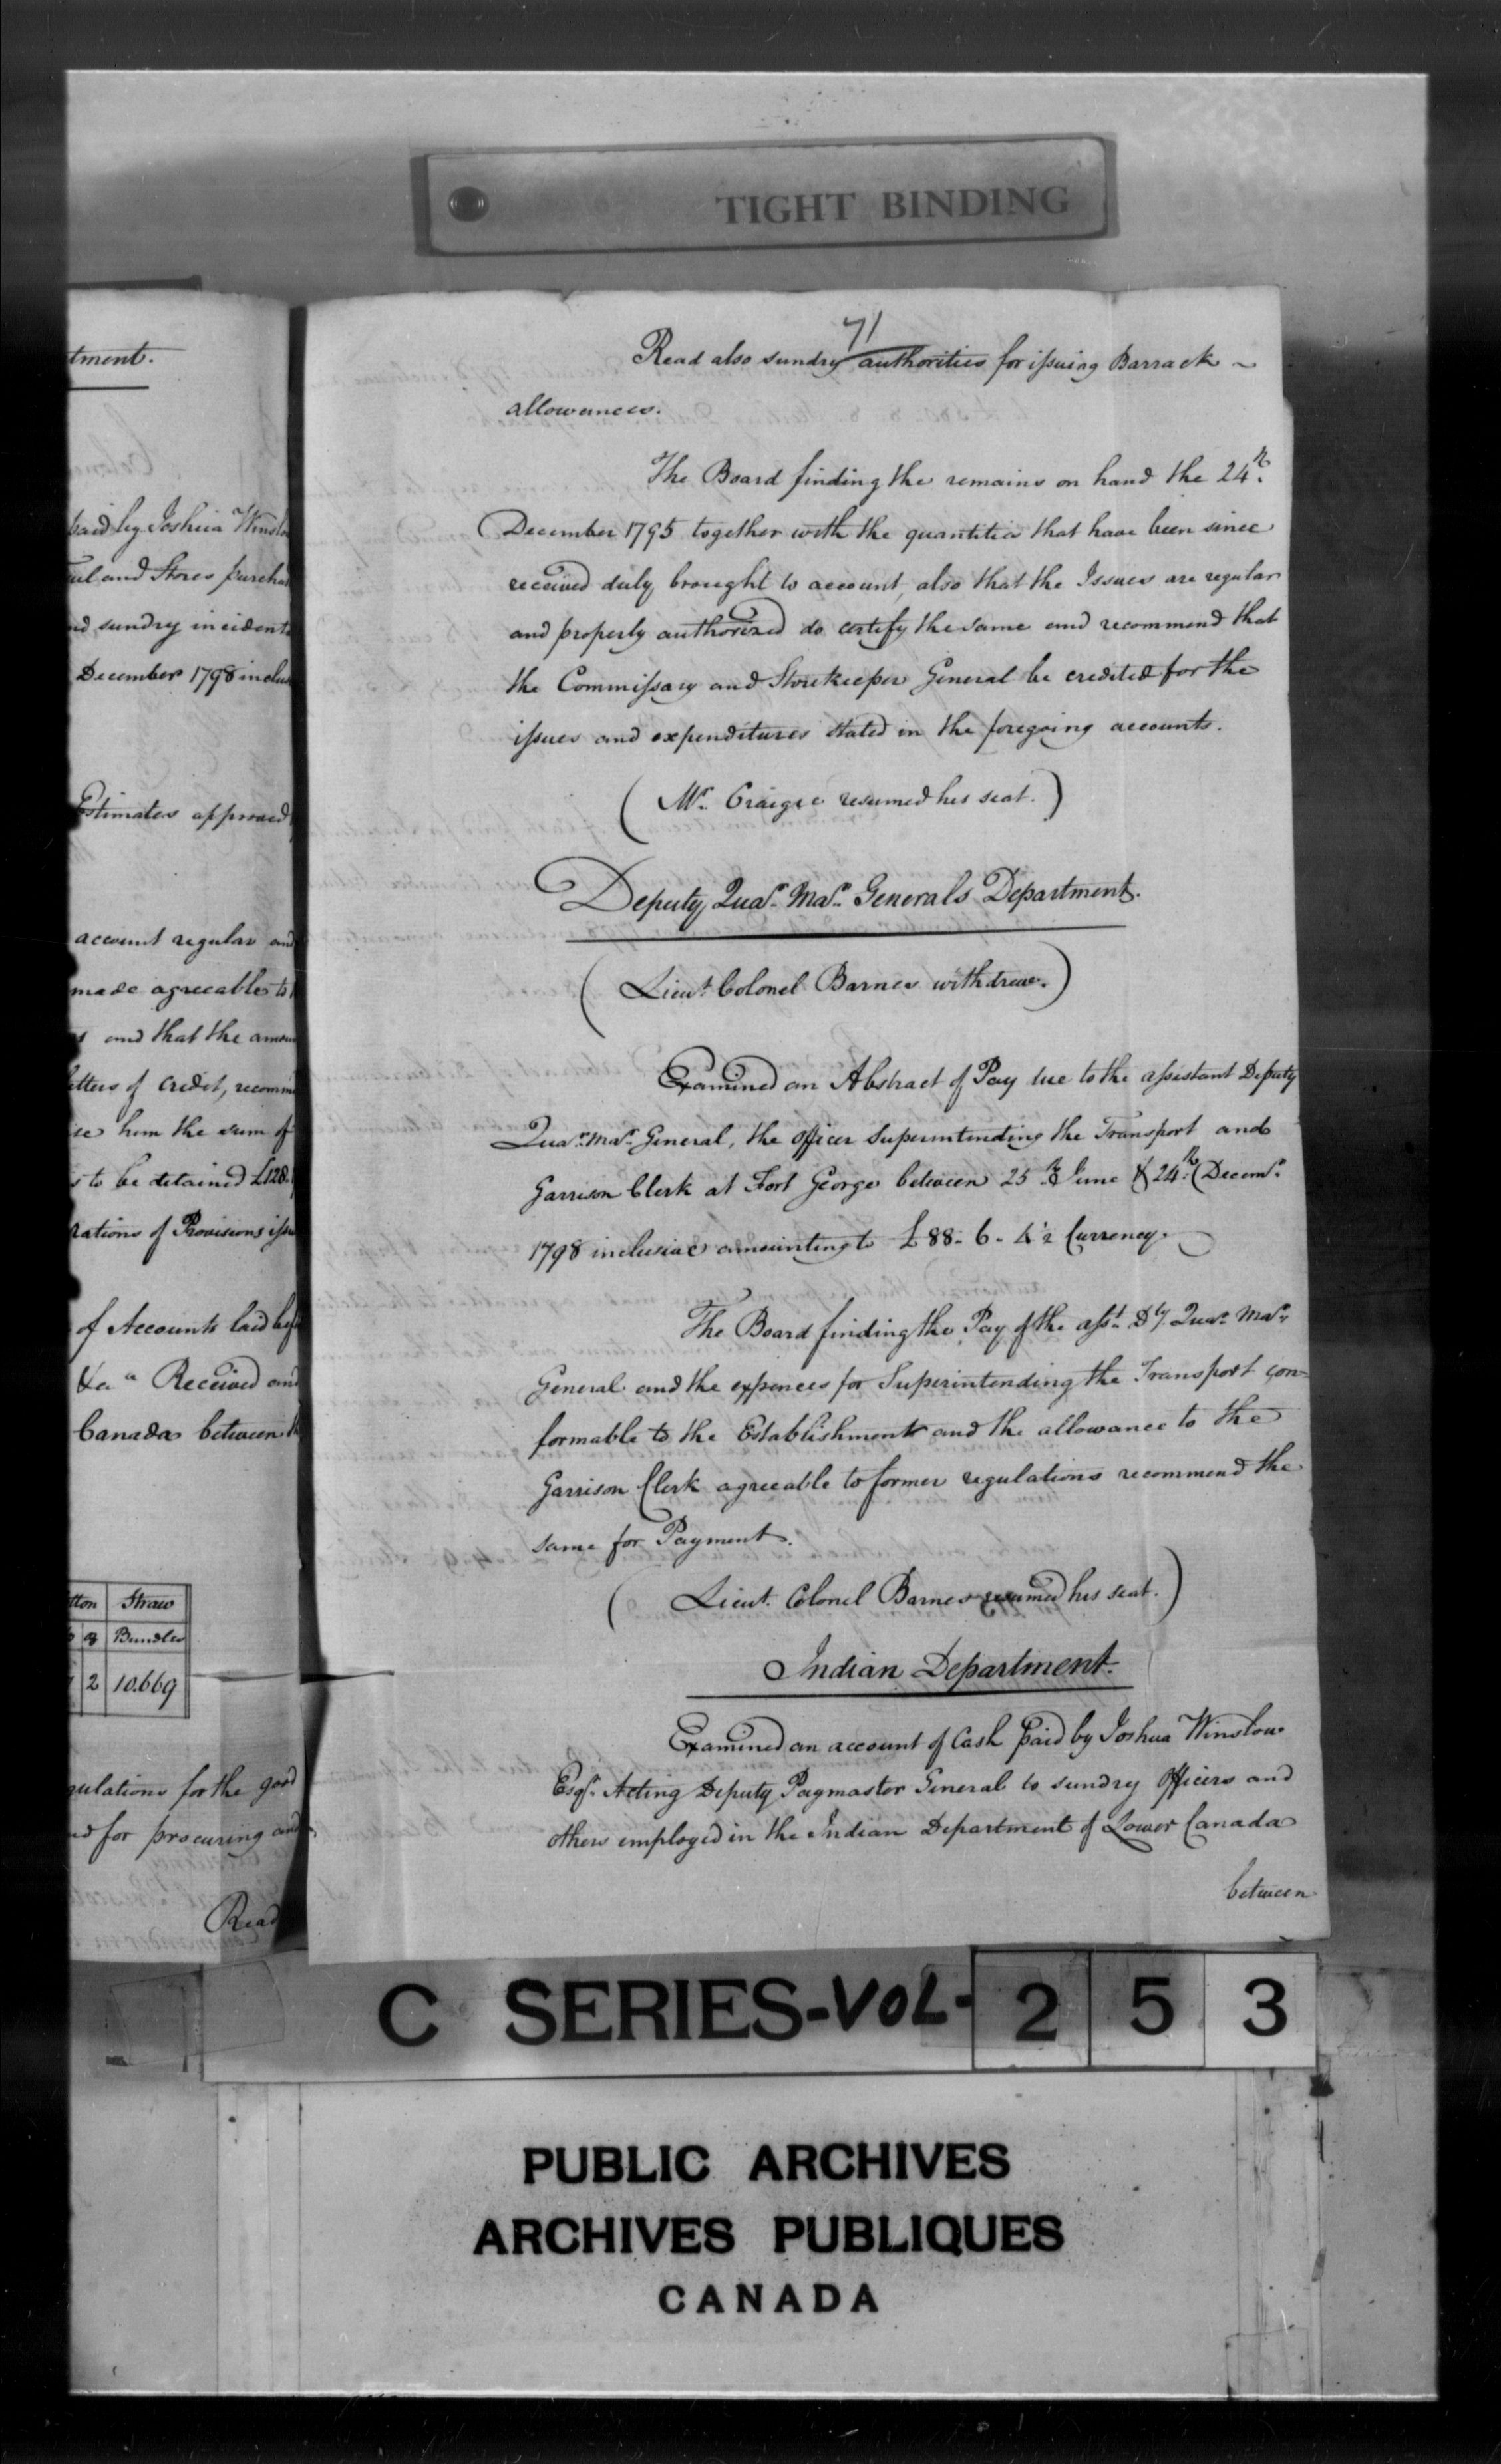 TIGHT BINDING
tment.
paid by Joshua Winslo
uel and Stores purcha
nd sundry incidents
December 1798 inclus
Estimates approved
account regular and
made agreeable to
s and that the amou
letters of credit, recomm
se him the sum of
s to be detained £128.
rations of Provisions issu
of Accounts laid bef
&ca Received and
Canada between
tton Straw
Bundles
2 10.669
gulations for the good
nd for procuring and
Read
71
Read also sundry authorities for issuing Barrack ~
allowances.
The Board finding the remains on hand the 24th
December 1795 together with the quantities that have been since
received duly brought to account, also that the Issues are regular
and properly authorized do certify the same and recommend that
the Commissary and Storekeeper General be credited for the
issues and expenditures stated in the foregoing accounts.
(Mr. Craigie resumed his seat.)
Deputy Quar. Mar. Generals Department.
(Lieut. Colonel Barnes withdrew.)
Examined an Abstract of Pay due to the assistant Deputy
Quar. Mar. General, the Officer Superintending the Transport and
Garrison Clerk at Fort George between 25th June & 24th Decemr.
1798 inclusive amounting to £88-6-4½ Currency.
The Board finding the Pay of the asst. Dy. Quar. Mar.
General and the expences for Superintending the Transport con=
formable to the Establishment and the allowance to the
Garrison Clerk agreeable to former regulations recommend the
same for Payment.
(Lieut. Colonel Barnes resumed his seat.)
Indian Department.
Examined an account of Cash paid by Joshua Winslow
Esqr. Acting Deputy Paymaster General to sundry Officers and
others employed in the Indian Department of Lower Canada
between
C SERIES-VOL-253
PUBLIC ARCHIVES
ARCHIVES PUBLIQUES
CANADA